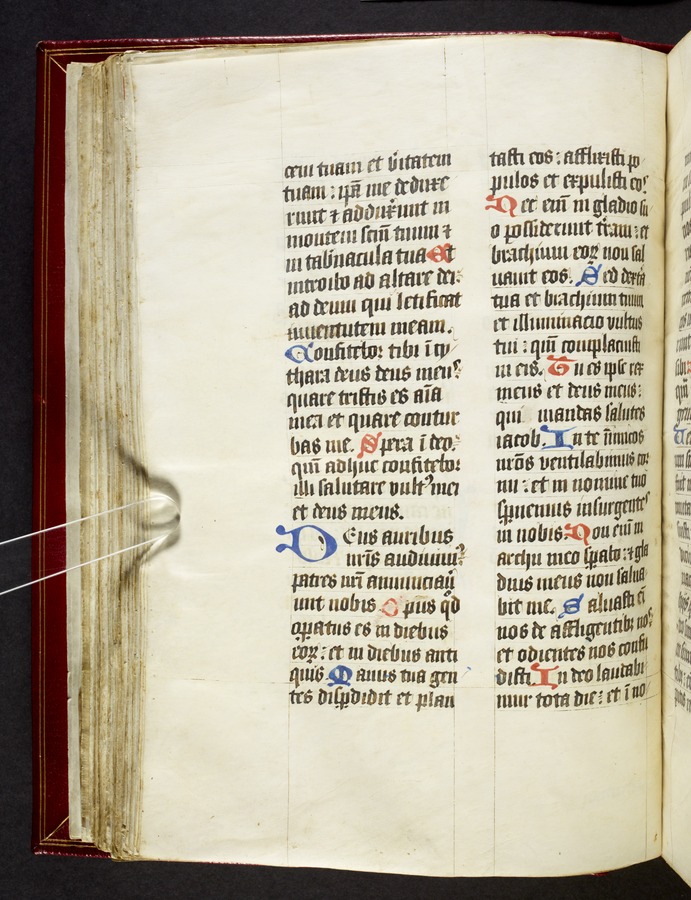 cem tuam et v̄itatem
tuam : ip̄a me deduxe
runt ⁊ adduxerunt in
montem sc̄m tuum ⁊
in tab̄nacula tua Et
introibo ad altare dei:
ad deum qui letificat
iuuentutem meam.
Confitebor tibi ī cy
thara deus deus meus:
quare tristis es aīa
mea et quare contur
bas me. Spera ī deo:
qm̄ adhuc confitebor
illi salutare vultꝰ mei
et deus meus.
Deus auribus
nr̄is audiuimꝰ:
patres nr̄i annunciaū
unt nobis Opus qd̄
op̄atus es in diebus
eoꝝ : et in diebus anti
quis. Manus tua gen
tes disp̄didit et plan
tasti eos : afflixisti po
pulos et expulisti eos
Nec em̄ in gladio su
o possederunt t̄ram : et
brachium eoꝝ non sal
uauit eos. Sed dext̄a
tua et brachium tuum
et illuminacio vultus
tui : qm̄ complacuisti
in eis. Tu es ipse rex
meus et deus meus :
qui mandas salutes
iacob. In te inimicos
nr̄os ventilabimus cor
nu : et in nomine tuo
sp̄nemus insurgentes
in nobis Non em̄ in
archu meo sp̄abo : ⁊ gla
dius meus non salua
bit me. Saluasti em̄
nos de affligentibꝫ nos
et odientes nos confu
disti. In deo laudabi
mur tota die : et ī no